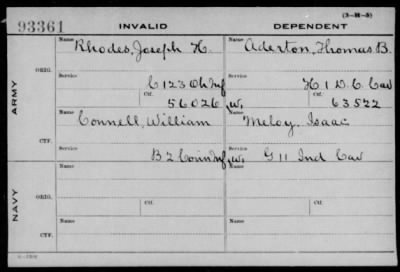 (3-H-5)
93361 INVALID DEPENDENT
Name Rhodes, Joseph H. Name Aderton, Thomas B.
ORIG.
Service C 123 Oh Inf Service H 1 D. C. Cav
Ctf. 56026 W. Ctf. 63522
ARMY
Name Connell, William Name Meloy, Isaac
CTF.
Service B 2 Conn Inf Service W. G 11 Ind Cav
Name Name
ORIG.
Ctf. Ctf.
NAVY
Name Name
CTF.